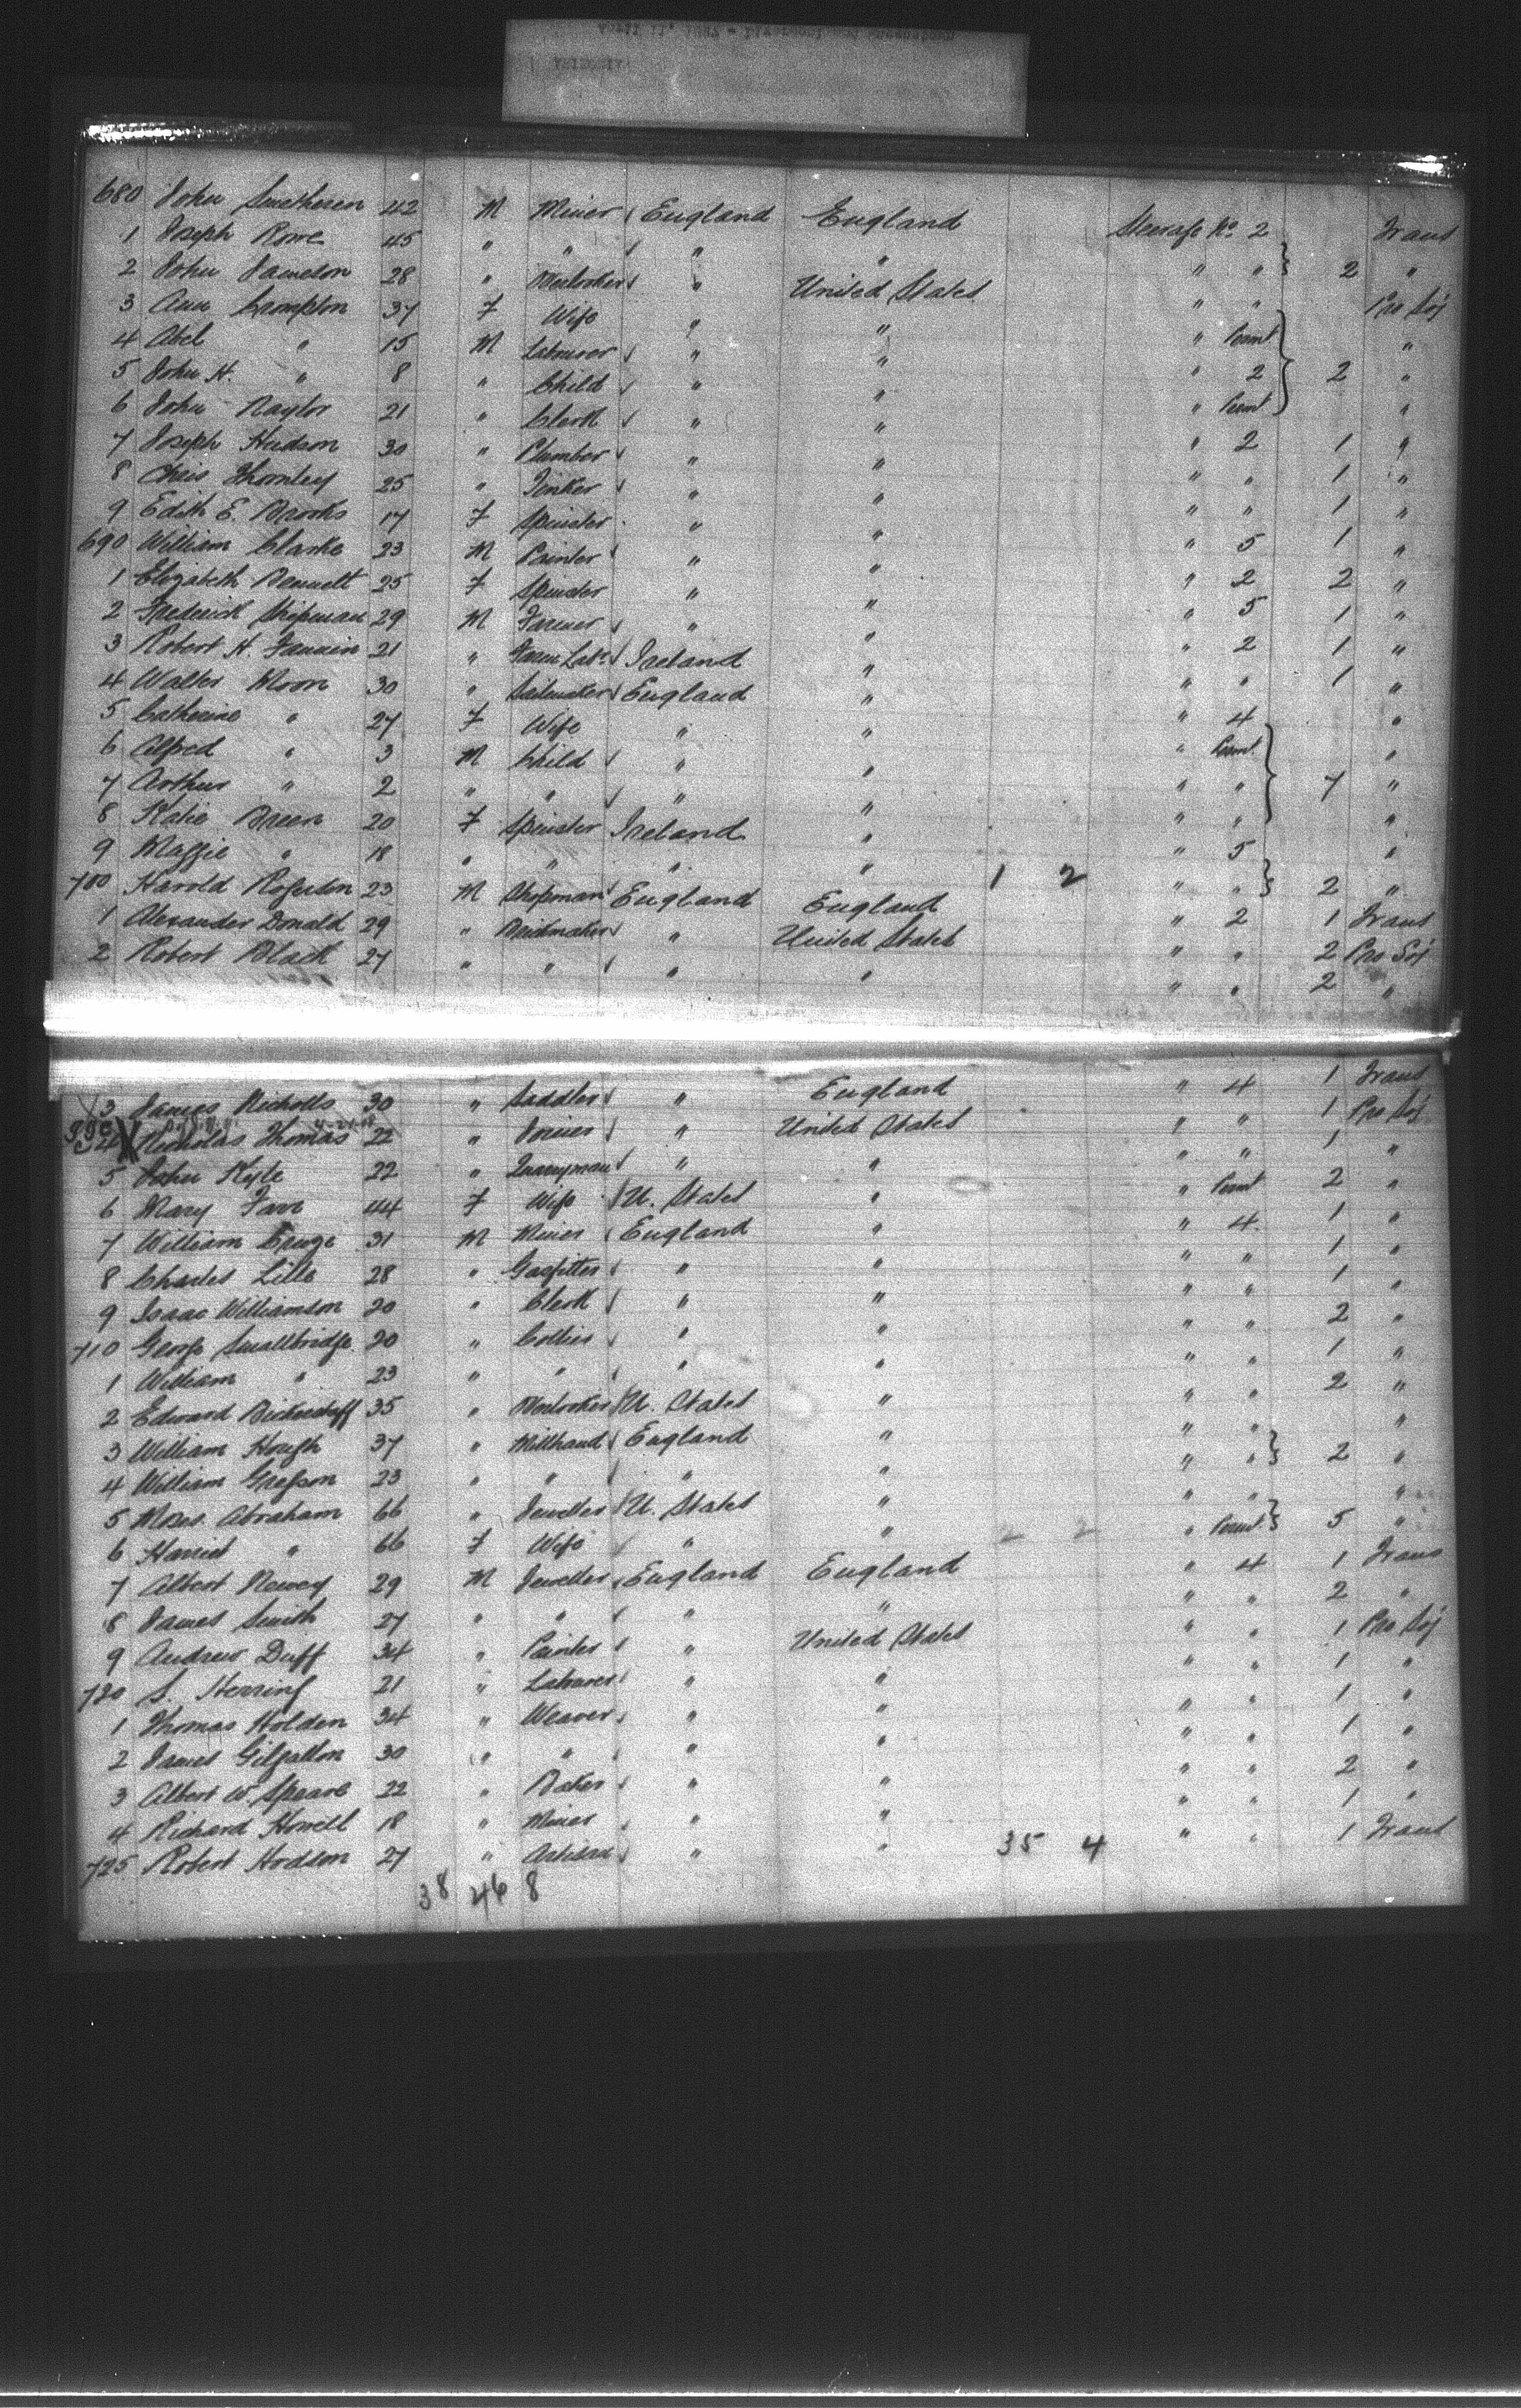 680 John Smetheren 42 M Miner England England Steerage No. 2 Trans
1 Joseph Rowe 45 " " " " " " 2 "
2 John Jameson 28 " Overlooker " United States " " Pro Soj
3 Ann Crompton 37 F Wife " " " Permt "
4 Abel " 15 M Labourer " " " 2 2 "
5 John H. " 8 " Child " " " Permt "
6 John Naylor 21 " Clerk " " " 2 1 "
7 Joseph Hudson 30 " Plumber " " " " 1 "
8 Chris Thornley 25 " " " " " 1 "
9 Edith E. Brooks 17 F Spinster " " " 5 1 "
690 William Clarke 23 M Painter " " " 2 2 "
1 Elizabeth Bennett 25 F Spinster " " " 5 1 "
2 Frederick Shipman 29 M Farmer " " " 2 1 "
3 Robert H. Fannin 21 " Farm Labr Ireland " " " 1 "
4 Walter Moon 30 " Sailmaker England " " 4 "
5 Catherine " 27 F Wife " " " Permt "
6 Alfred " 3 M Child " " " " 7 "
7 Arthur " 2 " " " " " " "
8 Katie Breen 20 F Spinster Ireland " " 5 "
9 Maggie " 18 " " " " 1 2 " " 2 "
700 Harold 23 M Shopman England England " 2 1 Trans
1 Alexander Donald 29 " " United States " " 2 Pro Soj
2 Robert Black 27 " " " " " " 2 "
3 James Nicholls 30 " Saddler " England " 4 1 Trans
4 X Nicholas Thomas 22 " " United States " " 1 Pro Soj
5 John Kyle 22 " Quarryman " " " " 1 "
6 Mary Farr 44 F Wife U. States " " Permt 2 "
7 William 31 M Miner England " " 4 1 "
8 Charles Lille 28 " Gasfitter " " " " 1 "
9 Isaac Williamson 20 " Clerk " " " " 1 "
710 George Smallbridge 20 " Collier " " " " 2 "
1 William " 23 " " " " " " 1 "
2 Edward Bickerstaff 35 " Overlooker U. States " " " 2 "
3 William Hough 37 " Millhand England " " " "
4 William Gregson 23 " " " " " " 2 "
5 Moses Abraham 66 " Jeweller U. States " " " "
6 Harriet " 66 F Wife " " 2 2 " Permt 5 "
7 Albert Newey 29 M Jeweller England England " 4 1 Trans
8 James Smith 27 " " " " " " 2 "
9 Andrew Duff 34 " Painter " United States " " 1 Pro Soj
720 S. Herring 21 " Labourer " " " " 1 "
1 Thomas Holden 34 " Weaver " " " " 1 "
2 James Gilgallon 30 " " " " " " 1 "
3 Albert W. Speare 22 " Baker " " " " 2 "
4 Richard Howell 18 " Miner " " " " 1 "
725 Robert Hodson 27 " Artisan " " 35 4 " " 1 Trans
38 46 8